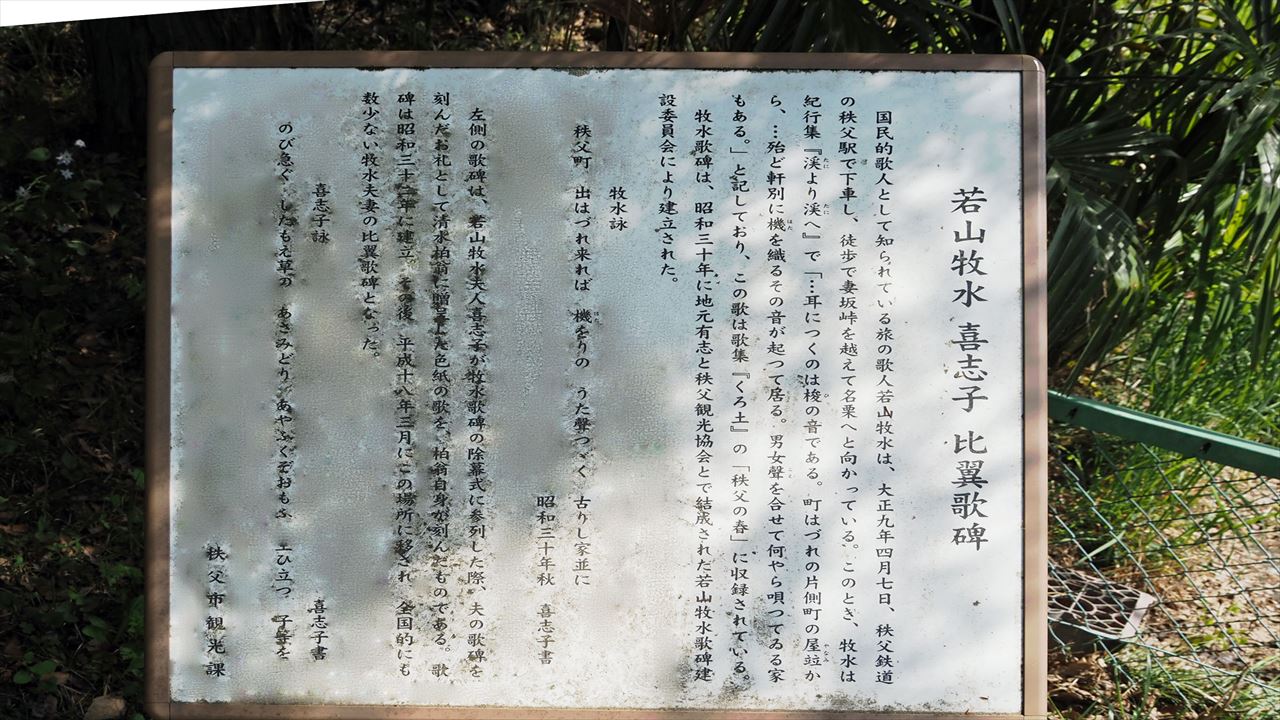 若山牧水 喜志子 比翼歌碑
国民的歌人として知られている旅の歌人若山牧水は、大正九年四月七日、秩父鉄道
の秩父駅で下車し、徒歩で妻坂峠を越えて名栗へと向かっている。このとき、牧水は
紀行集『渓より渓へ』で「…耳につくのは梭の音である。町はづれの片側町の屋竝か
ら、…殆ど軒別に機を織るその音が起つて居る。男女聲を合せて何やら唄つてゐる家
もある。」と記しており、この歌は歌集『くろ土』の「秩父の春」に収録されている。
牧水歌碑は、昭和三十年に地元有志と秩父観光協会とで結成された若山牧水歌碑建
設委員会により建立された。
牧水詠
秩父町 出はづれ来れば 機をりの うた聲つゞく 古りし家並に
昭和三十年秋 喜志子書
左側の歌碑は、若山牧水夫人喜志子が牧水歌碑の除幕式に参列した際、夫の歌碑を
刻んだお礼として清水柏翁に贈呈した色紙の歌を、柏翁自身が刻んだものである。歌
碑は昭和三十二年に建立、その後、平成十八年三月にこの場所に移され、全国的にも
数少ない牧水夫妻の比翼歌碑となった。
喜志子詠
のび急ぐ したもえ草の あさみどり あやふくぞおもふ 土ひ立つ 子等を
喜志子書
秩父市観光課